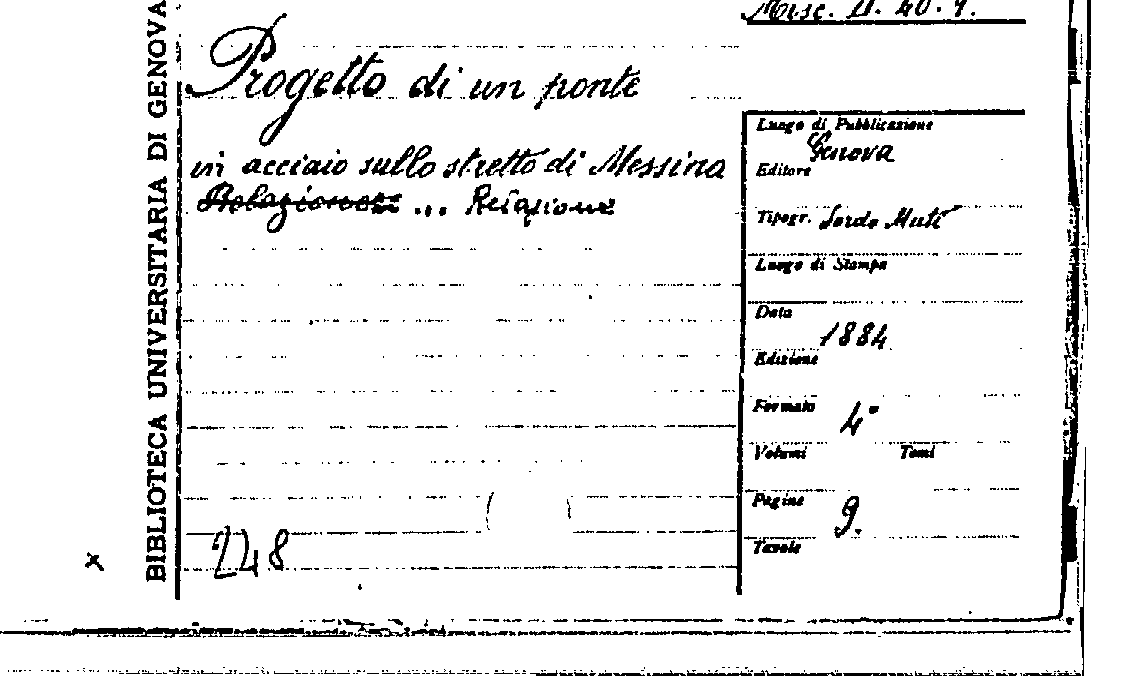 Misc. D. 40. 9.
BIBLIOTECA UNIVERSITARIA DI GENOVA
Progetto di un ponte
in acciaio sullo stretto di Messina
Relazione ... Relazione
248
x
Luogo di Pubblicazione
Genova
Editore
Tipogr. Sordo Muti
Luogo di Stampa
Data
1884
Edizione
Formato 4°
Volumi Tomi
Pagine 9.
Tavole